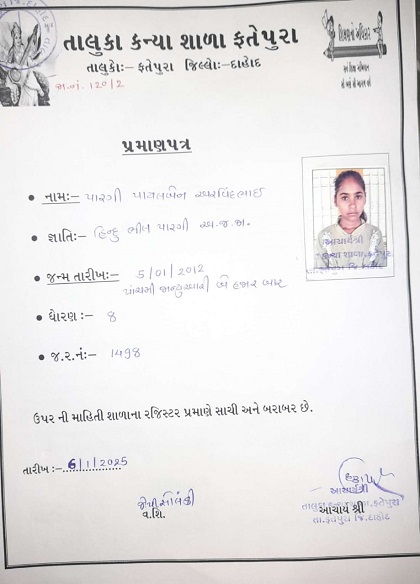 તાલુકા કન્યા શાળા ફતેપુરા
તાલુકો:- ફતેપુરા જિલ્લો:-દાહોદ
જા.નં. 120/2
પ્રમાણપત્ર
• નામ:- પારગી પાયલબેન અરવિંદભાઈ
• જ્ઞાતિ:- હિન્દુ ભીલ પારગી અ.જ.જા.
• જન્મ તારીખ:- 5/01/2012
પાંચમી જાન્યુઆરી બે હજાર બાર
• ધોરણ :- 8
• જ.ર.નં:- 1498
આચાર્યશ્રી
ઉપર ની માહિતી શાળાના રજિસ્ટર પ્રમાણે સાચી અને બરાબર છે.
તારીખ :- 6/1/2025
વ.શિ.
આચાર્યશ્રી
આચાર્ય શ્રી
તા.ફતેપુરા જિ.દાહોદ